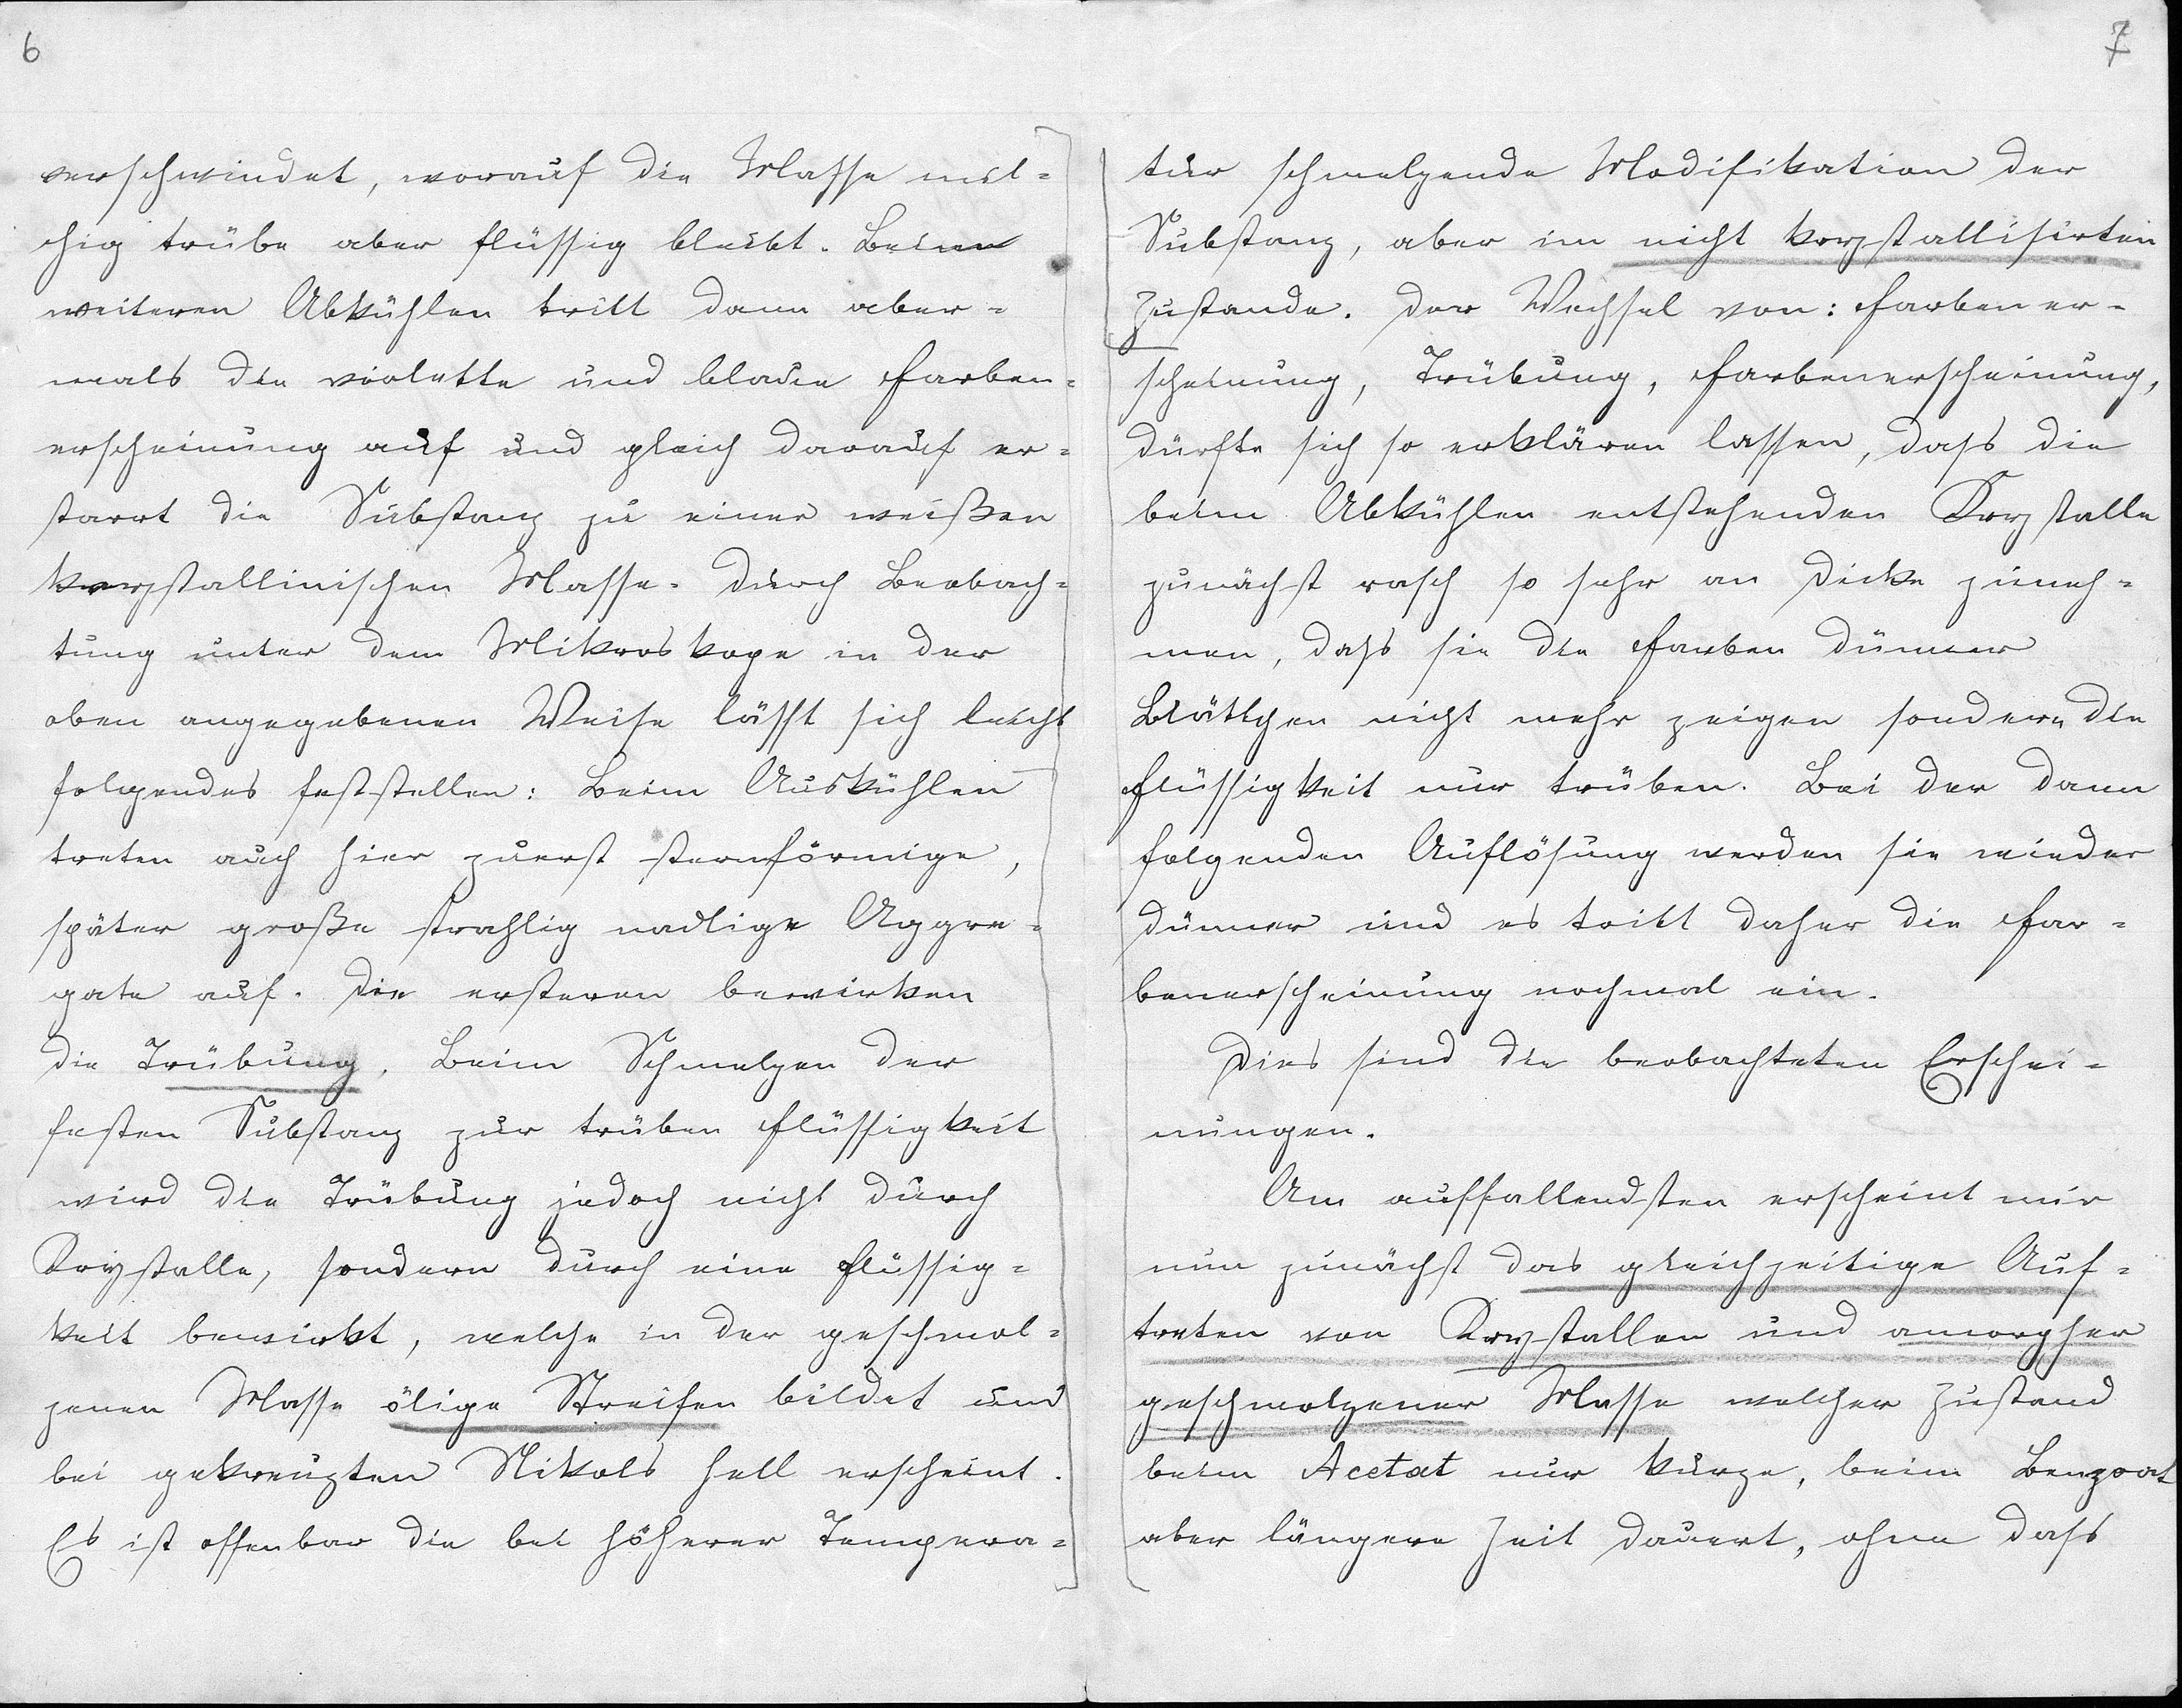 6
verschwindet, worauf die Masse mil=
chig trübe aber flüssig bleibt. Beim
weiteren Abkühlen tritt dann aber=
mals die violette und blaue Farben=
erscheinung auf und gleich darauf er=
starrt die Substanz zu einer weißen
krystallinischen Masse. Durch Beobach=
tung unter dem Mikroskope in der
oben angegebenen Weise lässt sich leicht
folgendes feststellen: Beim Auskühlen
treten auch hier zuerst sternförmige,
später große strahlig nadlige Aggre=
gate auf. Die ersteren bewirken
die Trübung. Beim Schmelzen der
festen Substanz zur trüben Flüssigkeit
wird die Trübung jedoch nicht durch
Krystalle, sondern durch eine Flüssig=
keit bewirkt, welche in der geschmol=
zenen Masse ölige Streifen bildet und
bei gekreuzten Nikols hell erscheint.
Es ist offenbar die bei höherer Tempera=
7
tur schmelzende Modifikation der
Substanz, aber im nicht krystallisirten
Zustande. Der Wechsel von: Farbener=
scheinung, Trübung, Farbenerscheinung,
dürfte sich so erklären lassen, dass die
beim Abkühlen entstehenden Krystalle
zunächst rasch so sehr an Dicke zuneh=
men, dass sie die Farben dünner
Blättchen nicht mehr zeigen sondern die
Flüssigkeit nur trüben. Bei der dann
folgenden Auflösung werden sie wieder
dünner und es tritt daher die Far=
benerscheinung nochmal ein.
Dies sind die beobachteten Erschei=
nungen.
Am auffallendsten erscheint mir
nun zunächst das gleichzeitige Auf=
treten von Krystallen und amorpher
geschmolzener Masse welcher Zustand
beim Acetat nur kurze, beim Benzoat
aber längere Zeit dauert, ohne dass